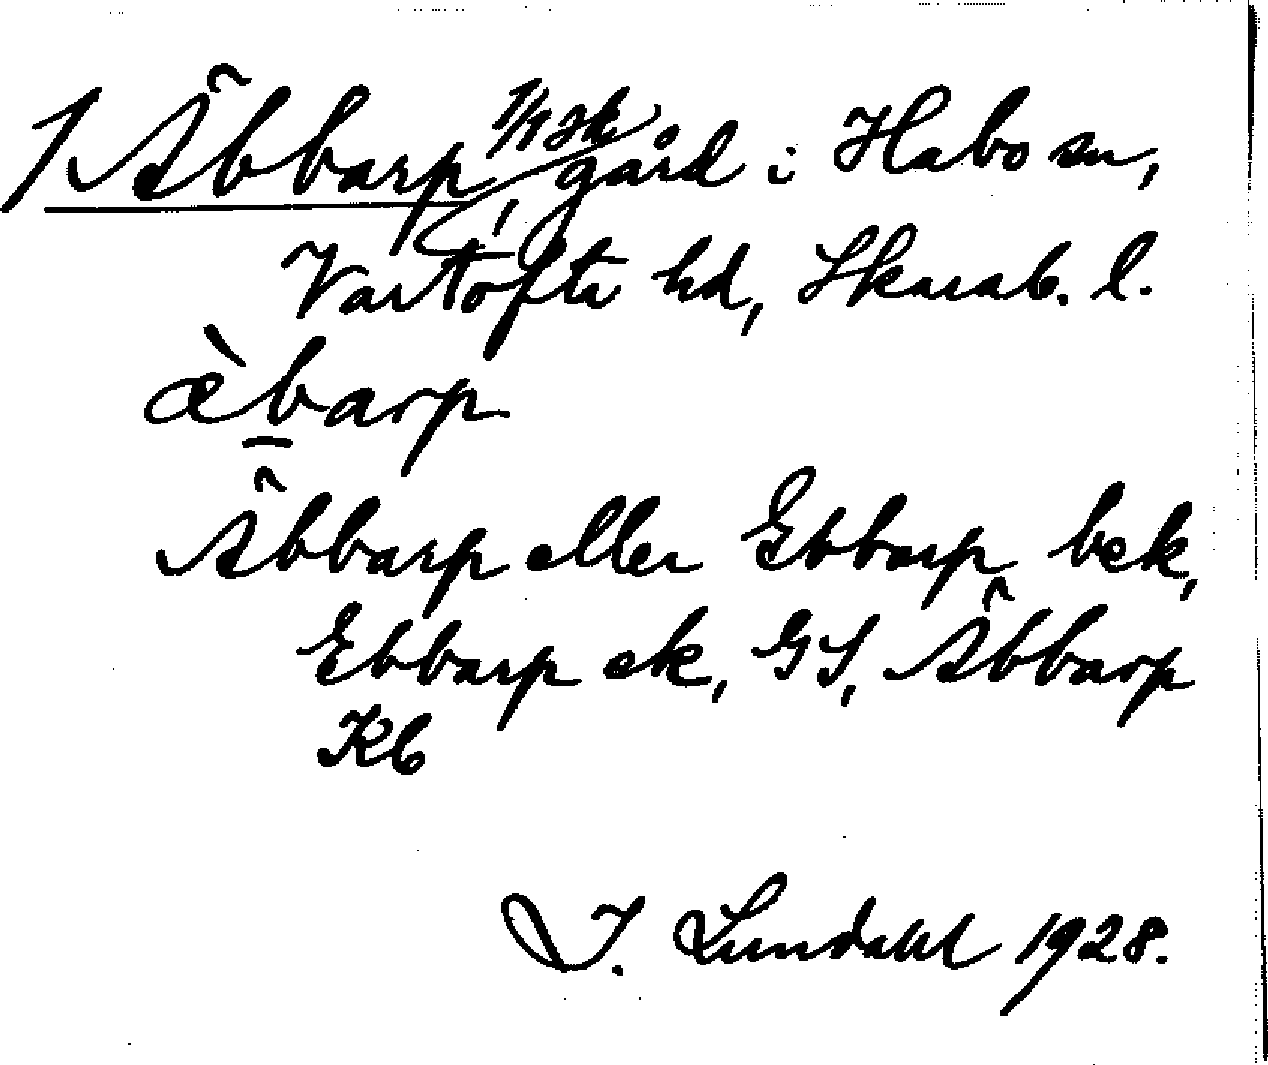 1 Äbbarp, 1/1 sk gård i Habo sn,
Vartofta hd, Skarab. l.
æ̀barp
Äbbarp eller Ebbarp bek,
Ebbarp ek, GS, Äbbarp
Kb
I. Lundahl 1928.